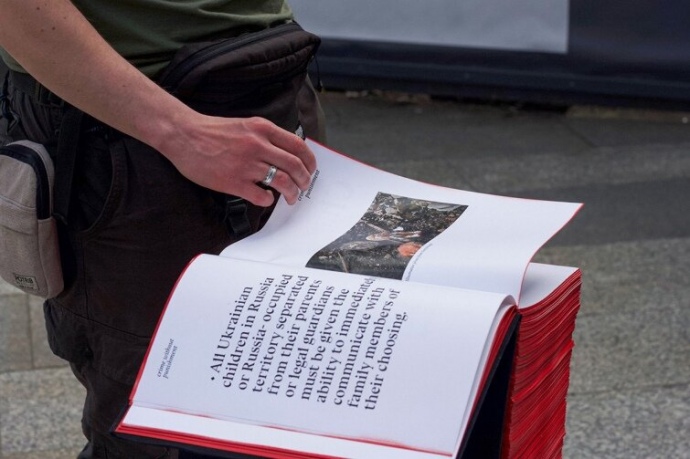 • All Ukrainian
children in Russia
or Russia- occupied
territory separated
from their parents
or legal guardians
must be given the
ability to immediately
communicate with
family members of
their choosing.
crime without
punishment
punishment